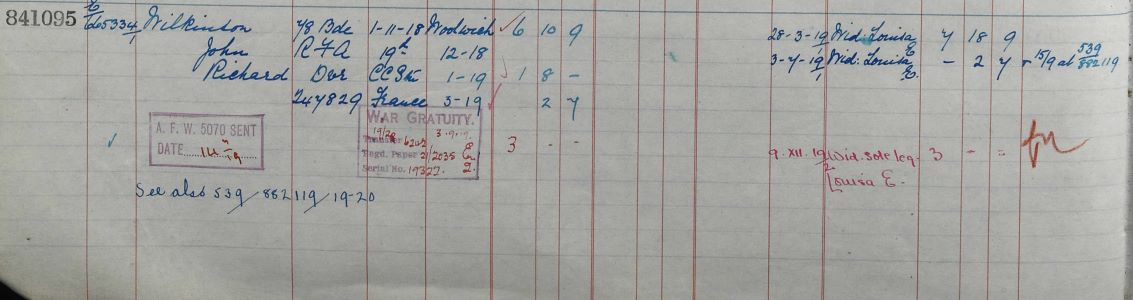 841095
E
765334/1 Wilkinson 78 Bde 1-11-18 Woolwich 6 10 9 28-3-19/1 Wid: Louisa E. 7 18 9
John R F A 19th 12-18 3-7-19/1 Wid: Louisa E. - 2 7 15/9 at 539/882119
Richard Dvr CCStn 1-19 1 8 -
247829 France 3-19 2 7
A. F. W. 5070 SENT
DATE
WAR GRATUITY.
19/20 3.9.19.
6202 3 - -
Regd. Paper 21/2035 E 9.XII.19/2 Wid. sole leg. 3 - =
Serial No. 19327. 2. Louisa E.
See also 539/882119/19-20